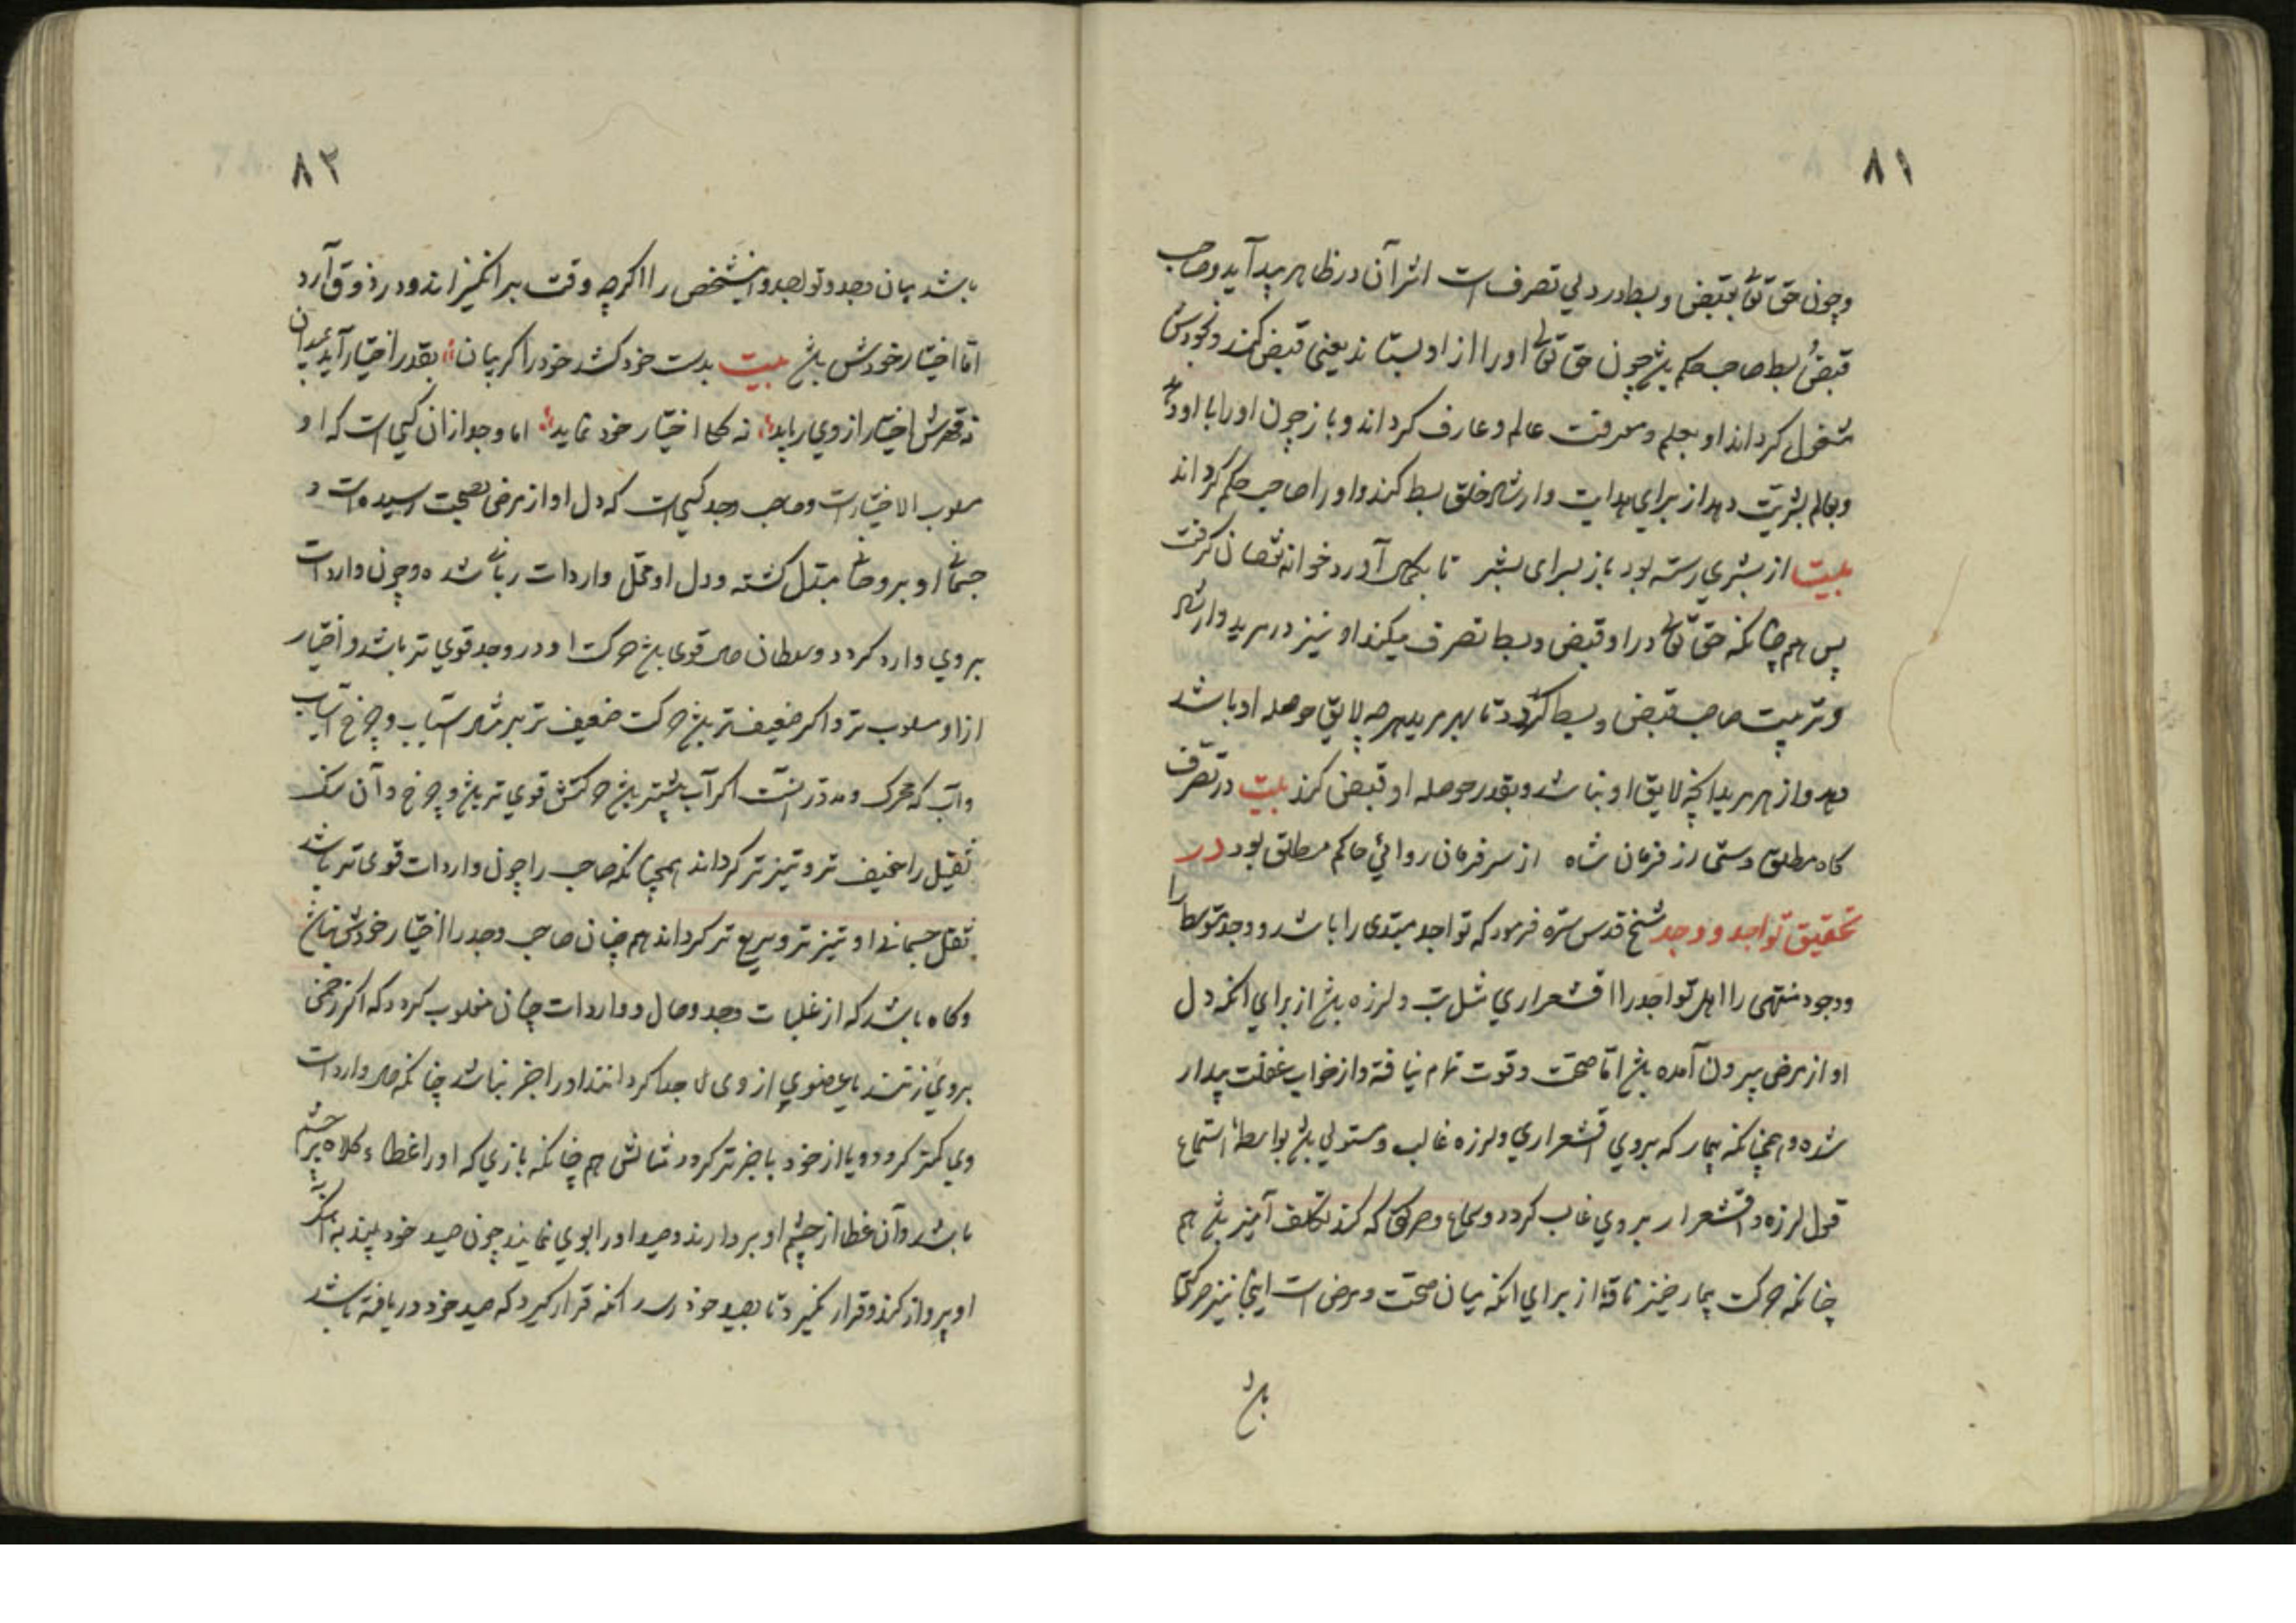 ۸۱
وچون حق تعالی بقبض و بسط در دلی تصرف است اثر آن در ظاهر پدید آید و صاحب
قبض بسط صاحب حکم باشد چون حق تعالی او را از او بستاند یعنی قبض کند و بخودش
مشغول گرداند او بعلم و معرفت عالم و عارف گرداند و باز چون او را با او دهد
و بعالم بشریت دهد از برای هدایت و ارشاد خلق بسط کند و او را صاحب حکم گرداند
بیت از بشری رسته بود باز برای بشر تا بکمال آورد خوانه نقصان گرفت
پس هم چنانکه حق تعالی در او قبض و بسط تصرف میکند او نیز در مرید و ارشاد
و تربیت صاحب قبض و بسط گردد تا بهر مرید هرچه لایق حوصله او باشد
دهد و از هر مرید آنچه لایق او نباشد و بقدر حوصله او قبض کند بیت در تصرف
کاه مطلق دستی از فرمان شاه از سر فرمان روائی حاکم مطلق بود در
تحقیق تواجد و وجد شیخ قدس سره فرمود که تواجد مبتدی را باشد و وجد متوسط را
ووجود منتهی را اهل تواجد را اقشعراری مثل تب و لرزه باشد از برای انکه دل
او از مرض بیرون آمده باشد اما صحت و قوت تمام نیافته و از خواب غفلت بیدار
شده و همچنانکه بیمار که بروی اقشعراری و لرزه غالب و مستولی باشد بواسطه استماع
قول لرزه و اقشعرار بروی غالب گردد و سماع و حرکتی که کند تکلف آمیز باشد هم
چنانکه حرکت بیمار خیز ناقه از برای انکه میان صحت و مرض است اینجا نیز حرکتها
باشد
۸۲
باشد میان وجد و تواجد و این شخص را اگرچه وقت برانگیزاند و در ذوق آرد
اما اختیار خودش باشد بیت بدست خود کشد خود را گریبان بقدر اختیار آید بمیدان
نه قهرش اختیار از وی رباید نه کلا اختیار خود نماید اما وجد از ان کسی است که او
مسلوب الاختیار است و صاحب وجد کسی است که دل او از مرض بصحت رسیده است و
جسمانی او بروحانی مبتدل گشته و دل او محل واردات ربانی شده و چون واردات
بروی وارد گردد و سلطان حال قوی باشد حرکت او در وجد قوی تر باشد و اختیار
از او مسلوب تر و اگر ضعیف تر باشد حرکت ضعیف تر بر مثال آسیاب و چرخ آسیاب
و آب که محرک و مدور آنست اگر آب بیشتر باشد حرکتش قوی تر باشد و چرخ و آن سنگ
ثقیل را خفیف تر و تیز تر گرداند همچنانکه صاحب را چون واردات قوی تر باشد
ثقل جسمانی او تیز تر و سریع تر گرداند هم چنان صاحب وجد را اختیار خودش نباشد
و گاه باشد که از غلبات وجد و حال و واردات چنان مغلوب گردد که اگر زخمی
بروی زنند یا عضوی از وی جدا گردانند او را خبر نباشد چنانکه حال واردات
وی کمتر گردد و یا از خود باخبر تر گردد مثالش هم چنانکه بازی که او را غطاء و کلاه بر چشم
باشد و آن غطا از چشم او بردارند و صید او را بوی نمایند چون صید خود بیند
او پرواز کند و قرار نگیرد تا بصید خود رسد انکه قرار گیرد که صید خود دریافته باشد